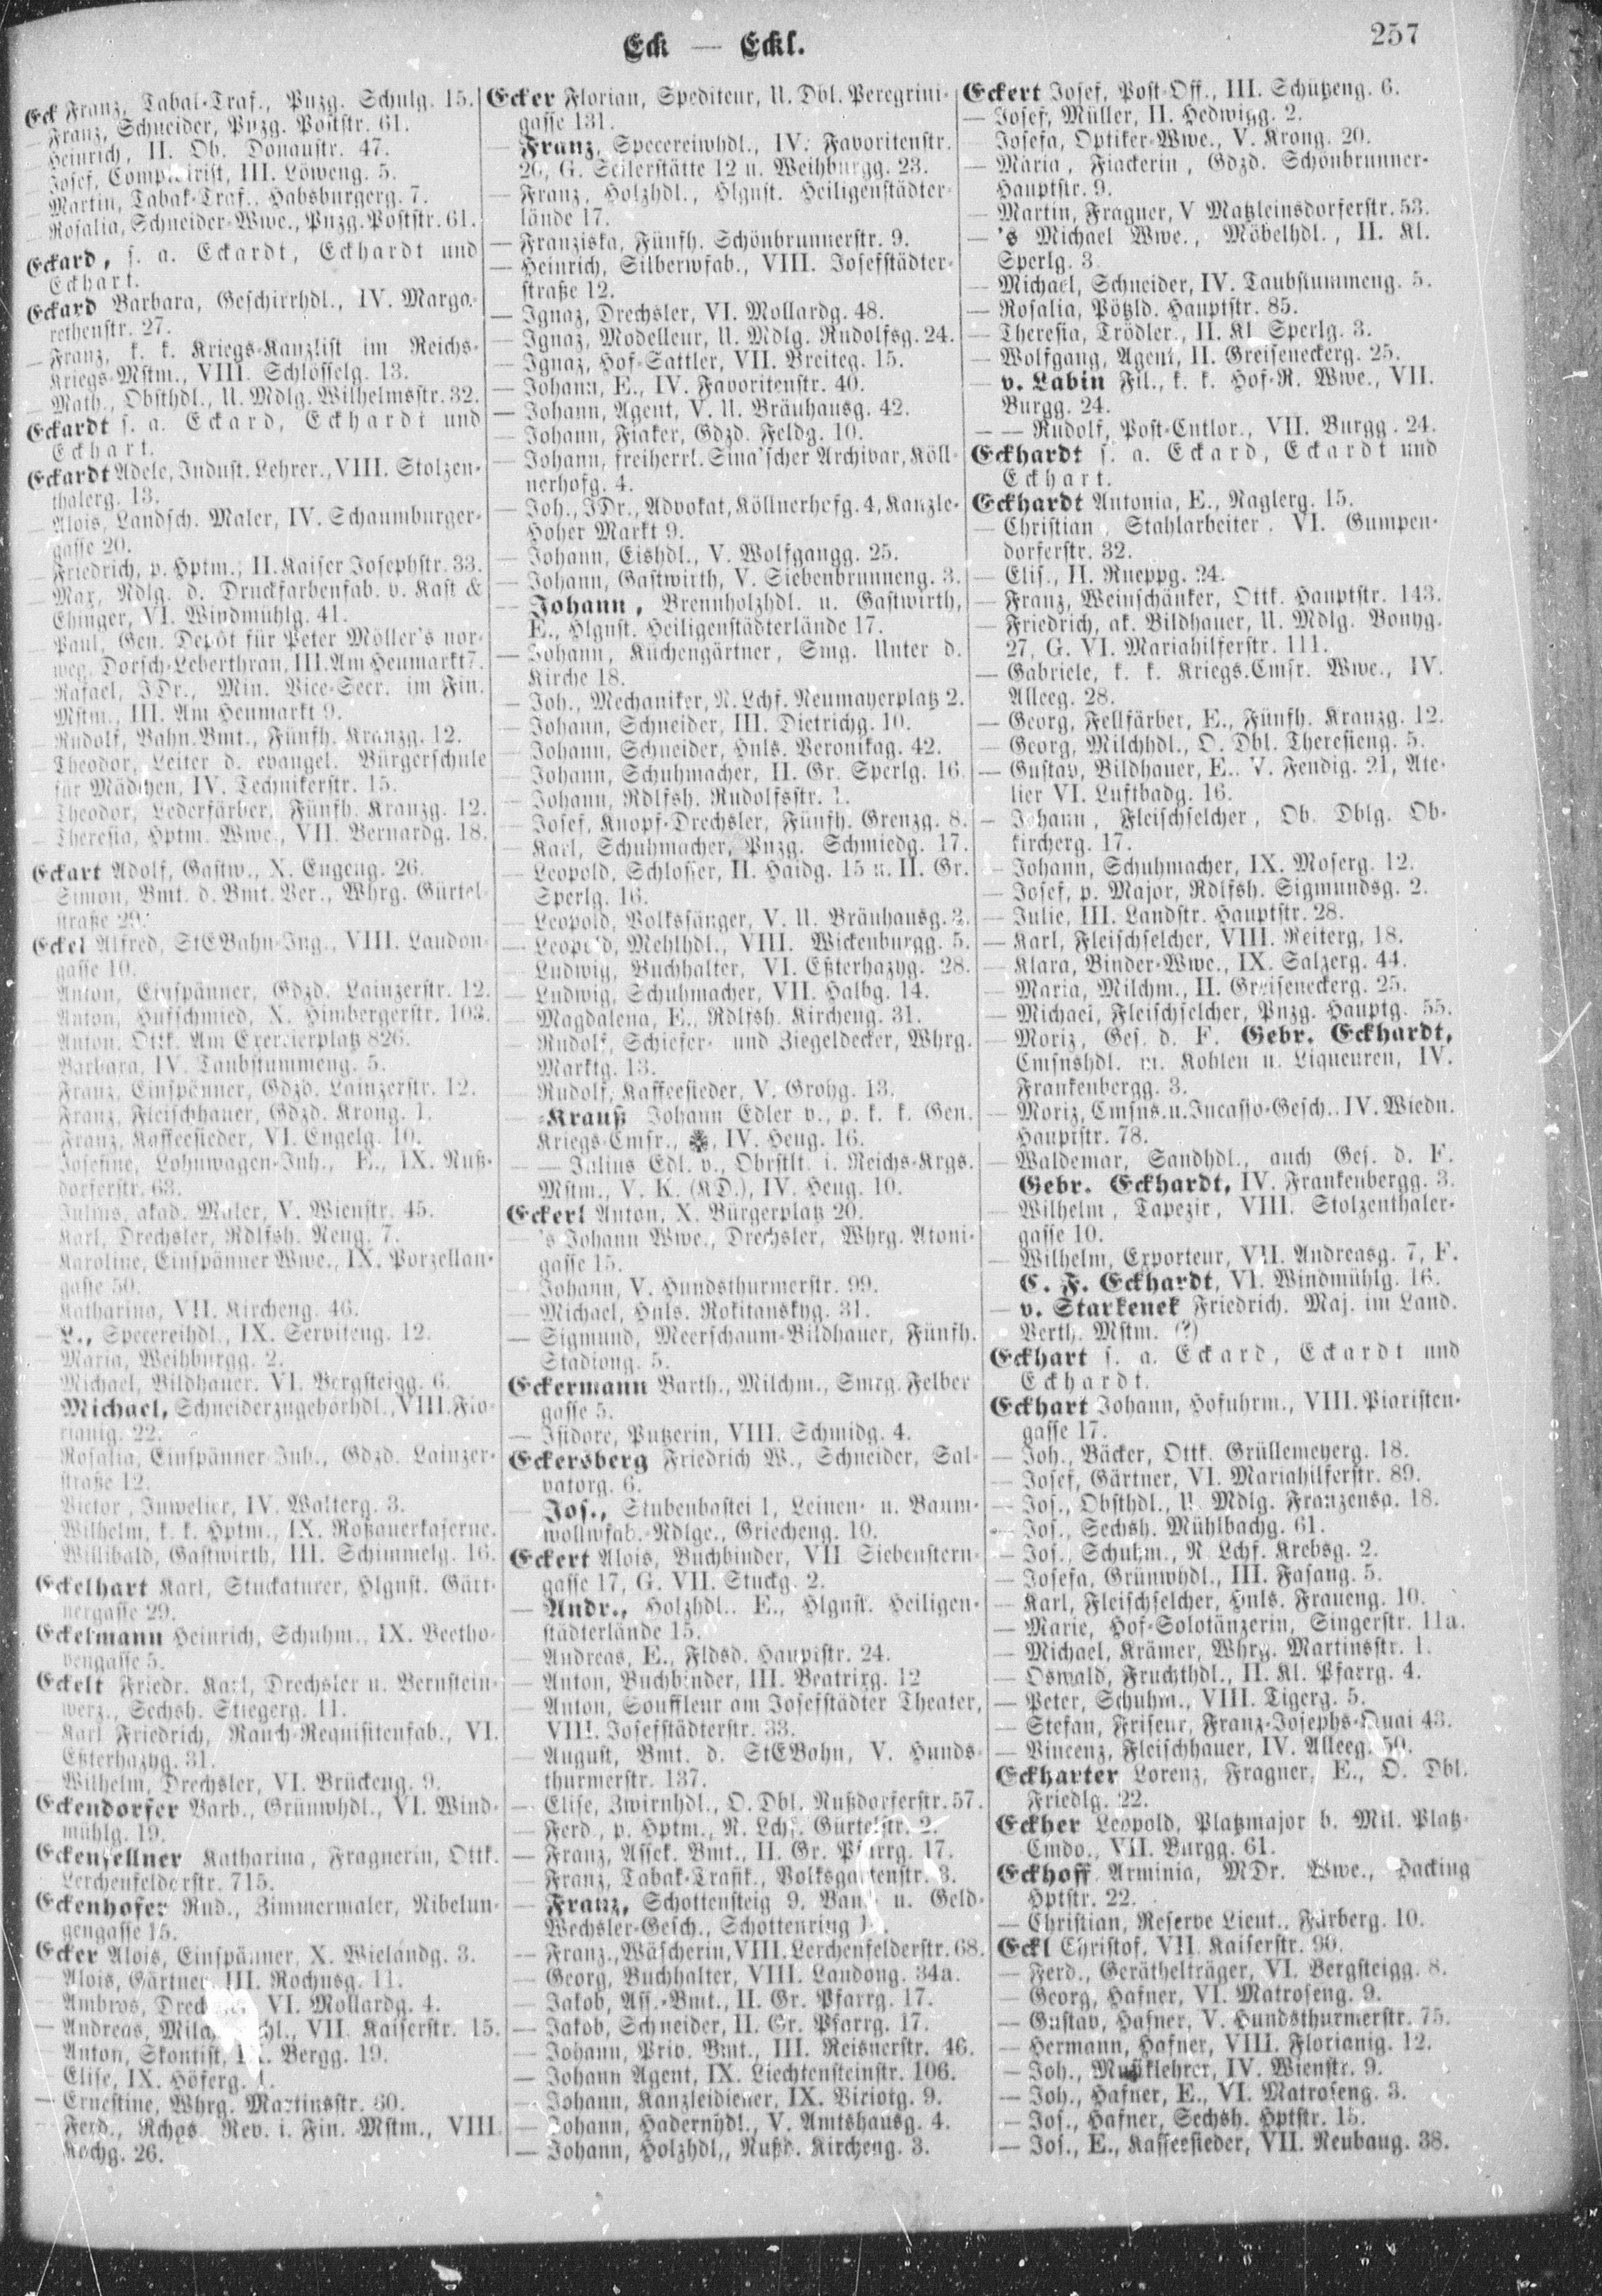 Eck — Eckl.
257
Eck Franz, Tabak-Traf., Pnzg. Schulg. 15.
— Franz, Schneider, Pnzg. Poststr. 61.
— Heinrich, II. Ob. Donaustr. 47.
— Josef, III. Löweng. 5.
— Martin, Tabak-Traf., Habsburgerg. 7.
— Rosalia, Schneider-Wwe., Pnzg. Poststr. 61.
Eckard, s. a. Eckardt, Eckhardt und
Eckhart.
Eckard Barbara, Geschirrhdl., IV. Marga-
rethenstr. 27.
— Franz, k. k. Kriegs-Kanzlist im Reichs-
Kriegs-Mstm., VIII. Schlösselg. 13.
— Math., Obsthdl., U. Mdlg. Wilhelmsstr. 32.
Eckardt s. a. Eckard, Eckhardt und
Eckhart.
Eckardt Adele, Indust. Lehrer., VIII. Stolzen-
thalerg. 13.
— Alois, Landsch. Maler, IV. Schaumburger-
gasse 20.
— Friedrich, p. Hptm., II. Kaiser Josephstr. 33.
— Max, Ndlg. d. Druckfarbenfab. v. Kast &
Ehinger, VI. Windmühlg. 41.
— Paul, Gen. Depôt für Peter Möller's nor-
weg. Dorsch-Leberthran, III. Am Heumarkt 7.
— Rafael, JDr., Min. Vice-Secr. im Fin.
Mstm., III. Am Heumarkt 9.
— Rudolf, Bahn-Bmt., Fünfh. Kranzg. 12.
— Theodor, Leiter d. evangel. Bürgerschule
für Mädchen, IV. Technikerstr. 15.
— Theodor, Lederfärber, Fünfh. Kranzg. 12.
— Theresia, Hptm. Wwe., VII. Bernardg. 18.
Eckart Adolf, Gastw., X. Eugeng. 26.
— Simon, Bmt. d. Bmt. Ver., Whrg. Gürtel-
straße 29.
Eckel Alfred, StEBahn-Ing., VIII. Laudon-
gasse 10.
— Anton, Einspänner, Gdzd. Lainzerstr. 12.
— Anton, Hufschmied, X. Himbergerstr. 103.
— Anton, Ottk. Am Exercierplatz 826.
— Barbara, IV. Taubstummeng. 5.
— Franz, Einspänner, Gdzd. Lainzerstr. 12.
— Franz, Fleischhauer, Gdzd. Krong. 1.
— Franz, Kaffeesieder, VI. Engelg. 10.
— Josefine, Lohnwagen-Inh., E., IX. Nuß-
dorferstr. 63.
— Julius, akad. Maler, V. Wienstr. 45.
— Karl, Drechsler, Rdlfsh. Neug. 7.
— Karoline, Einspänner Wwe., IX. Porzellan-
gasse 50.
— Katharina, VII. Kircheng. 46.
— L., Specereihdl., IX. Serviteng. 12.
— Maria, Weihburgg. 2.
— Michael, Bildhauer, VI. Bergsteigg. 6.
— Michael, Schneiderzugehörhdl., VIII. Flo-
rianig. 22.
— Rosalia, Einspänner-Inh., Gdzd. Lainzer-
straße 12.
— Victor, Juwelier, IV. Walterg. 3.
— Wilhelm, k. k. Hptm., IX. Roßauerkaserne.
— Willibald, Gastwirth, III. Schimmelg. 16.
Eckelhart Karl, Stuckaturer, Hlgnst. Gärt-
nergasse 29.
Eckelmann Heinrich, Schuhm., IX. Beetho-
vengasse 5.
Eckelt Friedr. Karl, Drechsler u. Bernstein-
werz., Sechsh. Stiegerg. 11.
— Karl Friedrich, Rauch-Requisitenfab., VI.
Eßterhazyg. 31.
— Wilhelm, Drechsler, VI. Brückeng. 9.
Eckendorfer Barb., Grünwhdl., VI. Wind-
mühlg. 19.
Eckenfellner Katharina, Fragnerin, Ottk.
Lerchenfelderstr. 715.
Eckenhofer Rud., Zimmermaler, Nibelun-
gengasse 15.
Ecker Alois, Einspänner, X. Wielandg. 3.
— Alois, Gärtner, III. Rochusg. 11.
— Ambros, VI. Mollardg. 4.
— Andreas, VII. Kaiserstr. 15.
— Anton, Skontist, Bergg. 19.
— Elise, IX. Höferg.
— Ernestine, Whrg. Martinsstr. 60.
— Ferd., Rchgs. Rev. i. Fin. Mstm., VIII.
Kochg. 26.
Ecker Florian, Spediteur, U. Dbl. Peregrini-
gasse 131.
— Franz, Specereiwhdl., IV. Favoritenstr.
20, G. Seilerstätte 12 u. Weihburgg. 23.
— Franz, Holzhdl., Hlgnst. Heiligenstädter-
lände 17.
— Franziska, Fünfh. Schönbrunnerstr. 9.
— Heinrich, Silberwfab., VIII. Josefstädter-
straße 12.
— Ignaz, Drechsler, VI. Mollardg. 48.
— Ignaz, Modelleur, U. Mdlg. Rudolfsg. 24.
— Ignaz, Hof-Sattler, VII. Breiteg. 15.
— Johann, E., IV. Favoritenstr. 40.
— Johann, Agent, V. U. Bräuhausg. 42.
— Johann, Fiaker, Gdzd. Feldg. 10.
— Johann, freiherrl. Sina'scher Archivar, Köll-
nerhofg. 4.
— Joh., JDr., Advokat, Köllnerhofg. 4, Kanzle-
Hoher Markt 9.
— Johann, Eishdl., V. Wolfgangg. 25.
— Johann, Gastwirth, V. Siebenbrunneng. 3.
— Johann, Brennholzhdl. u. Gastwirth,
E., Hlgnst. Heiligenstädterlände 17.
— Johann, Küchengärtner, Smg. Unter d.
Kirche 18.
— Joh., Mechaniker, N. Lchf. Neumayerplatz 2.
— Johann, Schneider, III. Dietrichg. 10.
— Johann, Schneider, Hnls. Veronikag. 42.
— Johann, Schuhmacher, II. Gr. Sperlg. 16.
— Johann, Rdlfsh. Rudolfsstr. 1.
— Josef, Knopf-Drechsler, Fünfh. Grenzg. 8.
— Karl, Schuhmacher, Pnzg. Schmiedg. 17.
— Leopold, Schlosser, II. Haidg. 15 u. II. Gr.
Sperlg. 16.
— Leopold, Volkssänger, V. U. Bräuhausg. 3.
— Leopold, Mehlhdl., VIII. Wickenburgg. 5.
— Ludwig, Buchhalter, VI. Eßterhazyg. 28.
— Ludwig, Schuhmacher, VII. Halbg. 14.
— Magdalena, E., Rdlfsh. Kircheng. 31.
— Rudolf, Schiefer- und Ziegeldecker, Whrg.
Marktg. 13.
— Rudolf, Kaffeesieder, V. Grohg. 13.
— -Krauß Johann Edler v., p. k. k. Gen.
Kriegs-Cmsr., IV. Heug. 16.
— — Julius Edl. v., Obrstlt. i. Reichs-Krgs.
Mstm., V. K. (KD.), IV. Heug. 10.
Eckerl Anton, X. Bürgerplatz 20.
— 's Johann Wwe., Drechsler, Whrg. Atoni-
gasse 15.
— Johann, V. Hundsthurmerstr. 99.
— Michael, Hnls. Rokitanskyg. 31.
— Sigmund, Meerschaum-Bildhauer, Fünfh.
Stadiong. 5.
Eckermann Barth., Milchm., Smrg. Felber
gasse 5.
— Isidore, Putzerin, VIII. Schmidg. 4.
Eckersberg Friedrich W., Schneider, Sal-
vatorg. 6.
— Jos., Stubenbastei 1, Leinen- u. Baum-
wollwfab.-Ndlge., Griecheng. 10.
Eckert Alois, Buchbinder, VII. Siebenstern-
gasse 17, G. VII. Stuckg. 2.
— Andr., Holzhdl., E., Hlgnst. Heiligen-
städterlände 15.
— Andreas, E., Fldsd. Hauptstr. 24.
— Anton, Buchbinder, III. Beatrixg. 12
— Anton, Souffleur am Josefstädter Theater,
VIII. Josefstädterstr. 33.
— August, Bmt. d. StEBahn, V. Hunds-
thurmerstr. 137.
— Elise, Zwirnhdl., O. Dbl. Nußdorferstr. 57.
— Ferd., p. Hptm., N. Lchf. Gürtelstr. 2.
— Franz, Assek. Bmt., II. Gr. Pfarrg. 17.
— Franz, Tabak-Trafik, Volksgartenstr. 3.
— Franz, Schottensteig 9, Bank- u. Geld-
Wechsler-Gesch., Schottenring
— Franz., Wäscherin, VIII. Lerchenfelderstr. 68.
— Georg, Buchhalter, VIII. Laudong. 34a.
— Jakob, Ass.-Bmt., II. Gr. Pfarrg. 17.
— Jakob, Schneider, II. Gr. Pfarrg. 17.
— Johann, Priv. Bmt., III. Reisnerstr. 46.
— Johann Agent, IX. Liechtensteinstr. 106.
— Johann, Kanzleidiener, IX. Viriotg. 9.
— Johann, Hadernhdl., V. Amtshausg. 4.
— Johann, Holzhdl., Nußd. Kircheng. 3.
Eckert Josef, Post-Off., III. Schützeng. 6.
— Josef, Müller, II. Hedwigg. 2.
— Josefa, Optiker-Wwe., V. Krong. 20.
— Maria, Fiackerin, Gdzd. Schönbrunner-
Hauptstr. 9.
— Martin, Fragner, V Matzleinsdorferstr. 53.
— 's Michael Wwe., Möbelhdl., II. Kl.
Sperlg. 3
— Michael, Schneider, IV. Taubstummeng. 5.
— Rosalia, Pötzld. Hauptstr. 85.
— Theresia, Trödler., II. Kl. Sperlg. 3.
— Wolfgang, Agent, II. Greiseneckerg. 25.
— v. Labin Fil., k. k. Hof-R. Wwe., VII.
Burgg. 24.
— — Rudolf, Post-Cntlor., VII. Burgg. 24.
Eckhardt s. a. Eckard, Eckardt und
Eckhart.
Eckhardt Antonia, E., Naglerg. 15.
— Christian, Stahlarbeiter, VI. Gumpen-
dorferstr. 32.
— Elis., II. Rueppg. 24.
— Franz, Weinschänker, Ottk. Hauptstr. 143.
— Friedrich, ak. Bildhauer, U. Mdlg. Bonyg.
27, G. VI. Mariahilferstr. 111.
— Gabriele, k. k. Kriegs.Cmsr. Wwe., IV.
Alleeg. 28.
— Georg, Fellfärber, E., Fünfh. Kranzg. 12.
— Georg, Milchhdl., O. Dbl. Theresieng. 5.
— Gustav, Bildhauer, E., V. Fendig. 21, Ate-
lier VI. Luftbadg. 16.
— Johann, Fleischselcher, Ob. Dblg. Ob-
kircherg. 17.
— Johann, Schuhmacher, IX. Moserg. 12.
— Josef, p. Major, Rdlfsh. Sigmundsg. 2.
— Julie, III. Landstr. Hauptstr. 28.
— Karl, Fleischselcher, VIII. Reiterg. 18.
— Klara, Binder-Wwe., IX. Salzerg. 44.
— Maria, Milchm., II. Greiseneckerg. 25.
— Michael, Fleischselcher, Pnzg. Hauptg. 55.
— Moriz, Ges. d. F. Gebr. Eckhardt,
Cmsnshdl. m. Kohlen u. Liqueuren, IV.
Frankenbergg. 3.
— Moriz, Cmsns. u. Incasso-Gesch., IV. Wiedn.
Hauptstr. 78.
— Waldemar, Sandhdl., auch Ges. d. F.
Gebr. Eckhardt, IV. Frankenbergg. 3.
— Wilhelm, Tapezir, VIII. Stolzenthaler-
gasse 10.
— Wilhelm, Exporteur, VII. Andreasg. 7, F.
C. F. Eckhardt, VI. Windmühlg. 16.
— v. Starkenek Friedrich, Maj. im Land.
Verth. Mstm. (?)
Eckhart s. a. Eckard, Eckardt und
Eckhardt.
Eckhart Johann, Hofuhrm., VIII. Piaristen-
gasse 17.
— Joh., Bäcker, Ottk. Grüllemeyerg. 18.
— Josef, Gärtner, VI. Mariahilferstr. 89.
— Jos., Obsthdl., U. Mdlg. Franzensg. 18.
— Jos., Sechsh. Mühlbachg. 61.
— Jos., Schuhm., N. Lchf. Krebsg. 2.
— Josefa, Grünwhdl., III. Fasang. 5.
— Karl, Fleischselcher, Hnls. Fraueng. 10.
— Marie, Hof-Solotänzerin, Singerstr. 11a.
— Michael, Krämer, Whrg. Martinsstr. 1.
— Oswald, Fruchthdl., II. Kl. Pfarrg. 4.
— Peter, Schuhm., VIII. Tigerg. 5.
— Stefan, Friseur, Franz-Josephs-Quai 43.
— Vincenz, Fleischhauer, IV. Alleeg.
Eckharter Lorenz, Fragner, E., O. Dbl.
Friedlg. 22.
Eckher Leopold, Platzmajor b. Mil. Platz-
Cmdo., VII. Burgg. 61.
Eckhoff Arminia, MDr. Wwe., Hacking
Hptstr. 22.
— Christian, Reserve Lieut., Färberg. 10.
Eckl Christof, VII. Kaiserstr. 90.
— Ferd., Geräthelträger, VI. Bergsteigg. 8.
— Georg, Hafner, VI. Matroseng. 9.
— Gustav, Hafner, V. Hundsthurmerstr. 75.
— Hermann, Hafner, VIII. Florianig. 12.
— Joh., Musiklehrer, IV. Wienstr. 9.
— Joh., Hafner, E., VI. Matroseng. 3.
— Jos., Hafner, Sechsh. Hptstr. 15.
— Jos., E., Kaffeesieder, VII. Neubaug. 38.